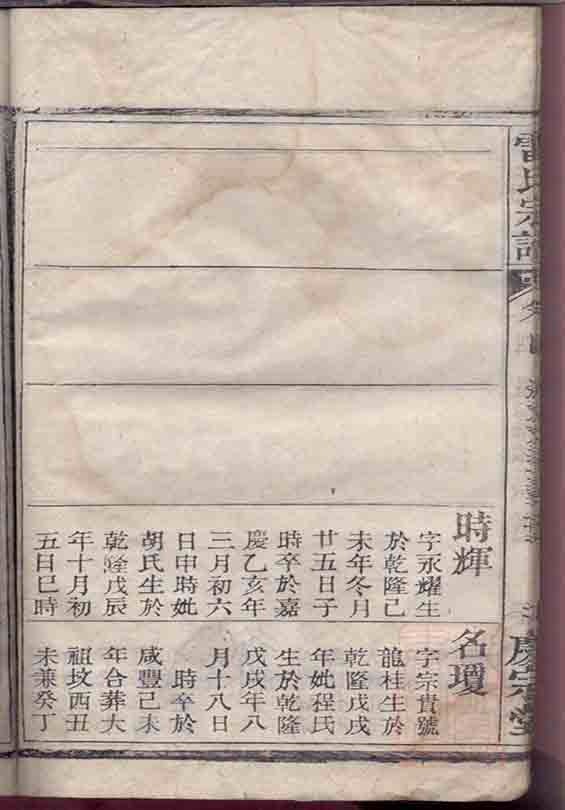 雷氏宗譜
時輝
字永耀生
於乾隆己
未年冬月
廿五日子
時卒於嘉
慶乙亥年
三月初六
日申時妣
胡氏生於
乾隆戊辰
年十月初
五日巳時
名瓊
字宗貴號
龍桂生於
乾隆戊戌
年妣程氏
生於乾隆
戊戌年八
月十八日
時卒於
咸豐己未
年合葬大
祖坟西丑
未兼癸丁